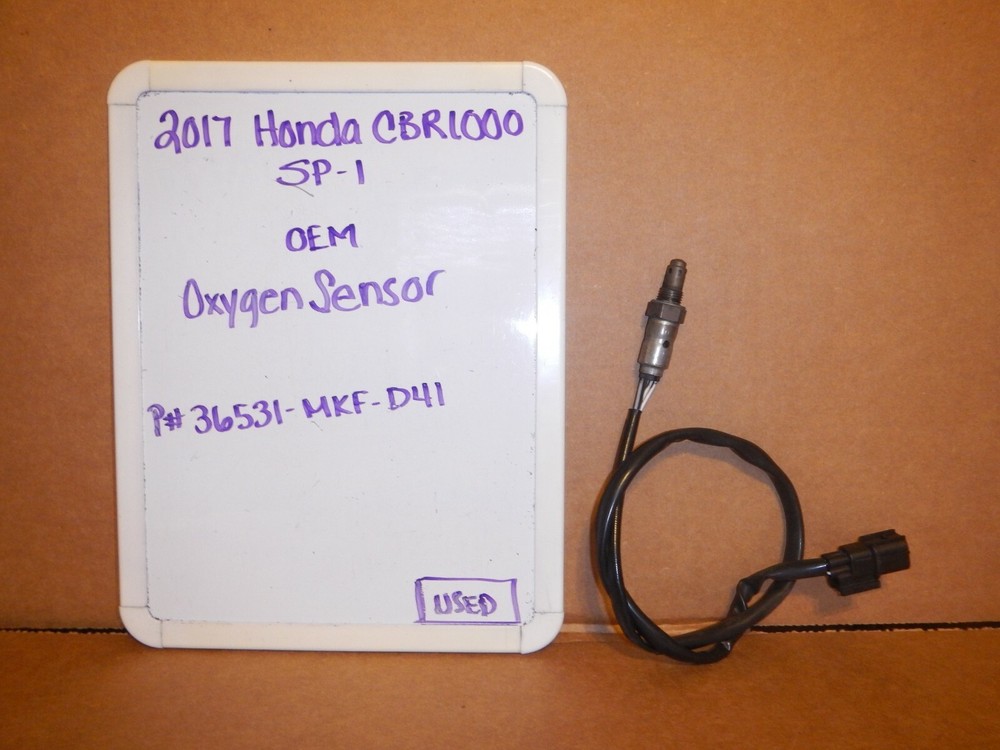 2017 Honda CBR1000
SP-1
OEM
Oxygen Sensor
P# 36531-MKF-D41
USED